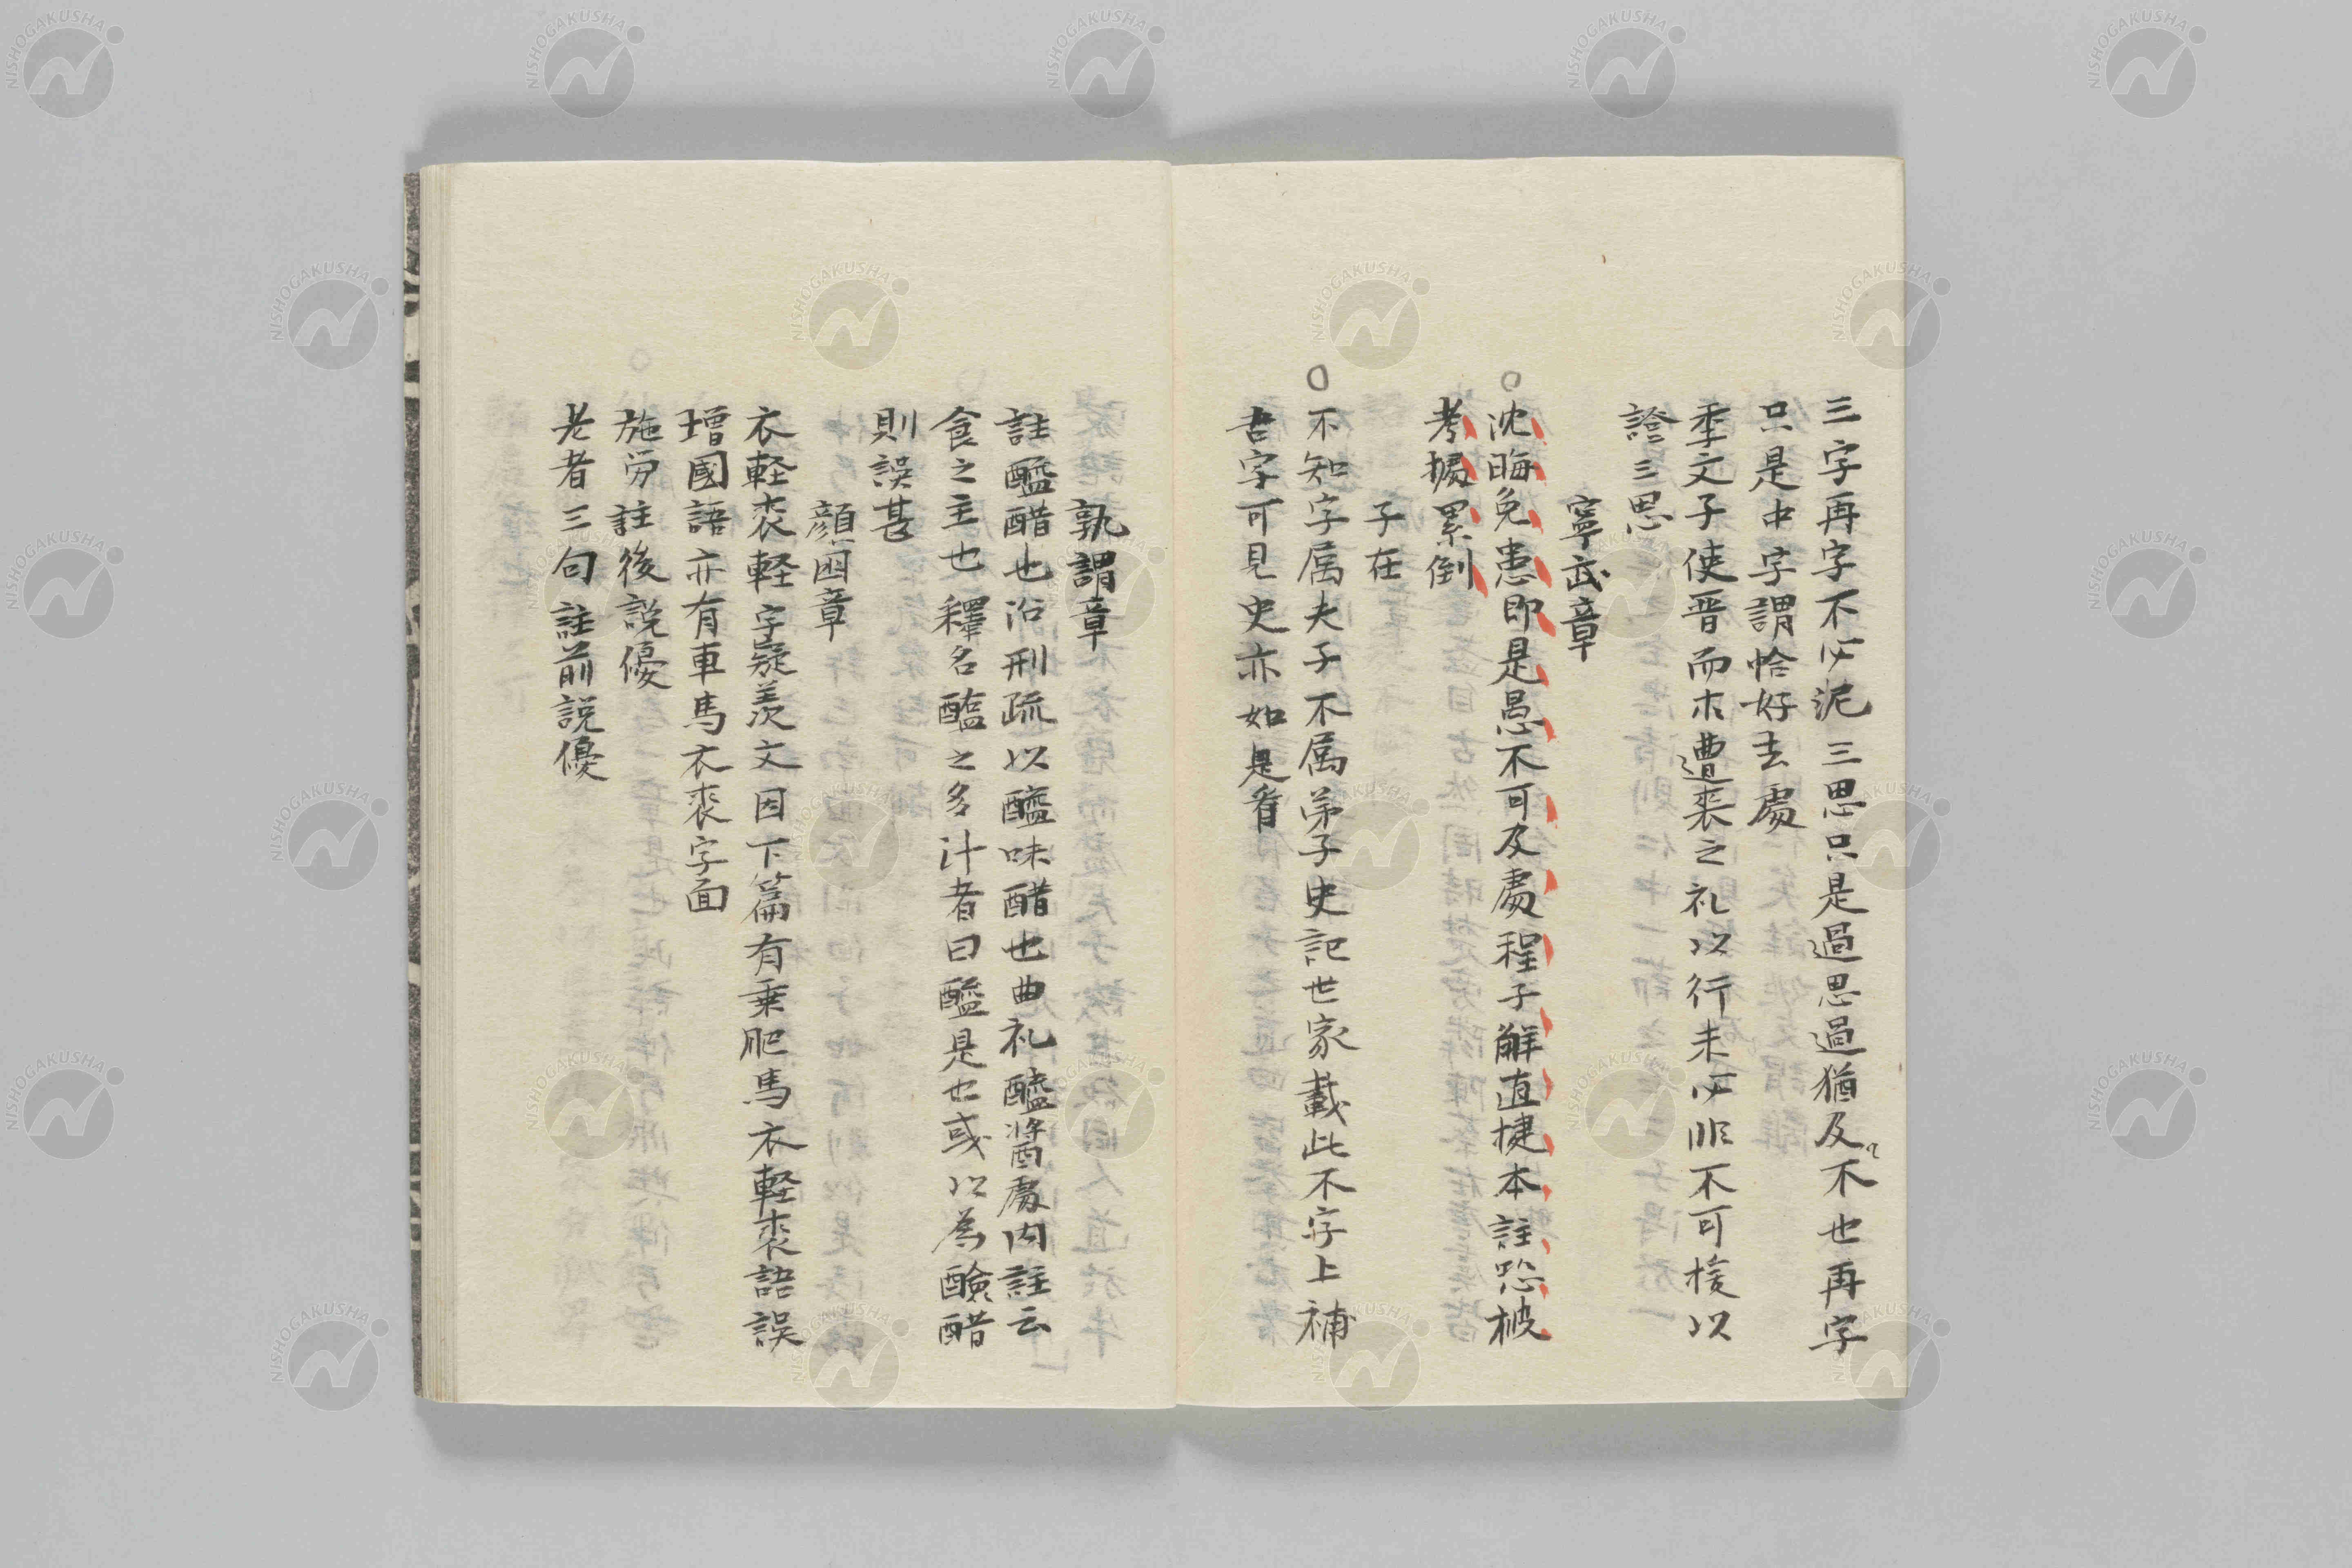 三字再字不必泥三思只是過思過猶及不也再字
只是中字謂恰好去處
季文子使晋而求遭喪之礼以行未必非不可援以
證三思
寧武章
沈晦免患即是愚不可及處程子解直捷本註恐被
考據累倒
子在
不知字属夫子不属弟子史記世家載此不字上補
吉字可見史亦如是看
孰謂章
註醯醋也沿刑疏以醯味醋也曲礼醯醬處内註云
食之主也釋名醢之多汁者曰醯是也或以為醶醋
則誤甚
顔因章
衣軽裘軽字疑羨文因下篇有乗肥馬衣軽裘語誤
増國語亦有車馬衣裘字面
施労註後説優
老者三句註前説優
NISHOGAKUSHA